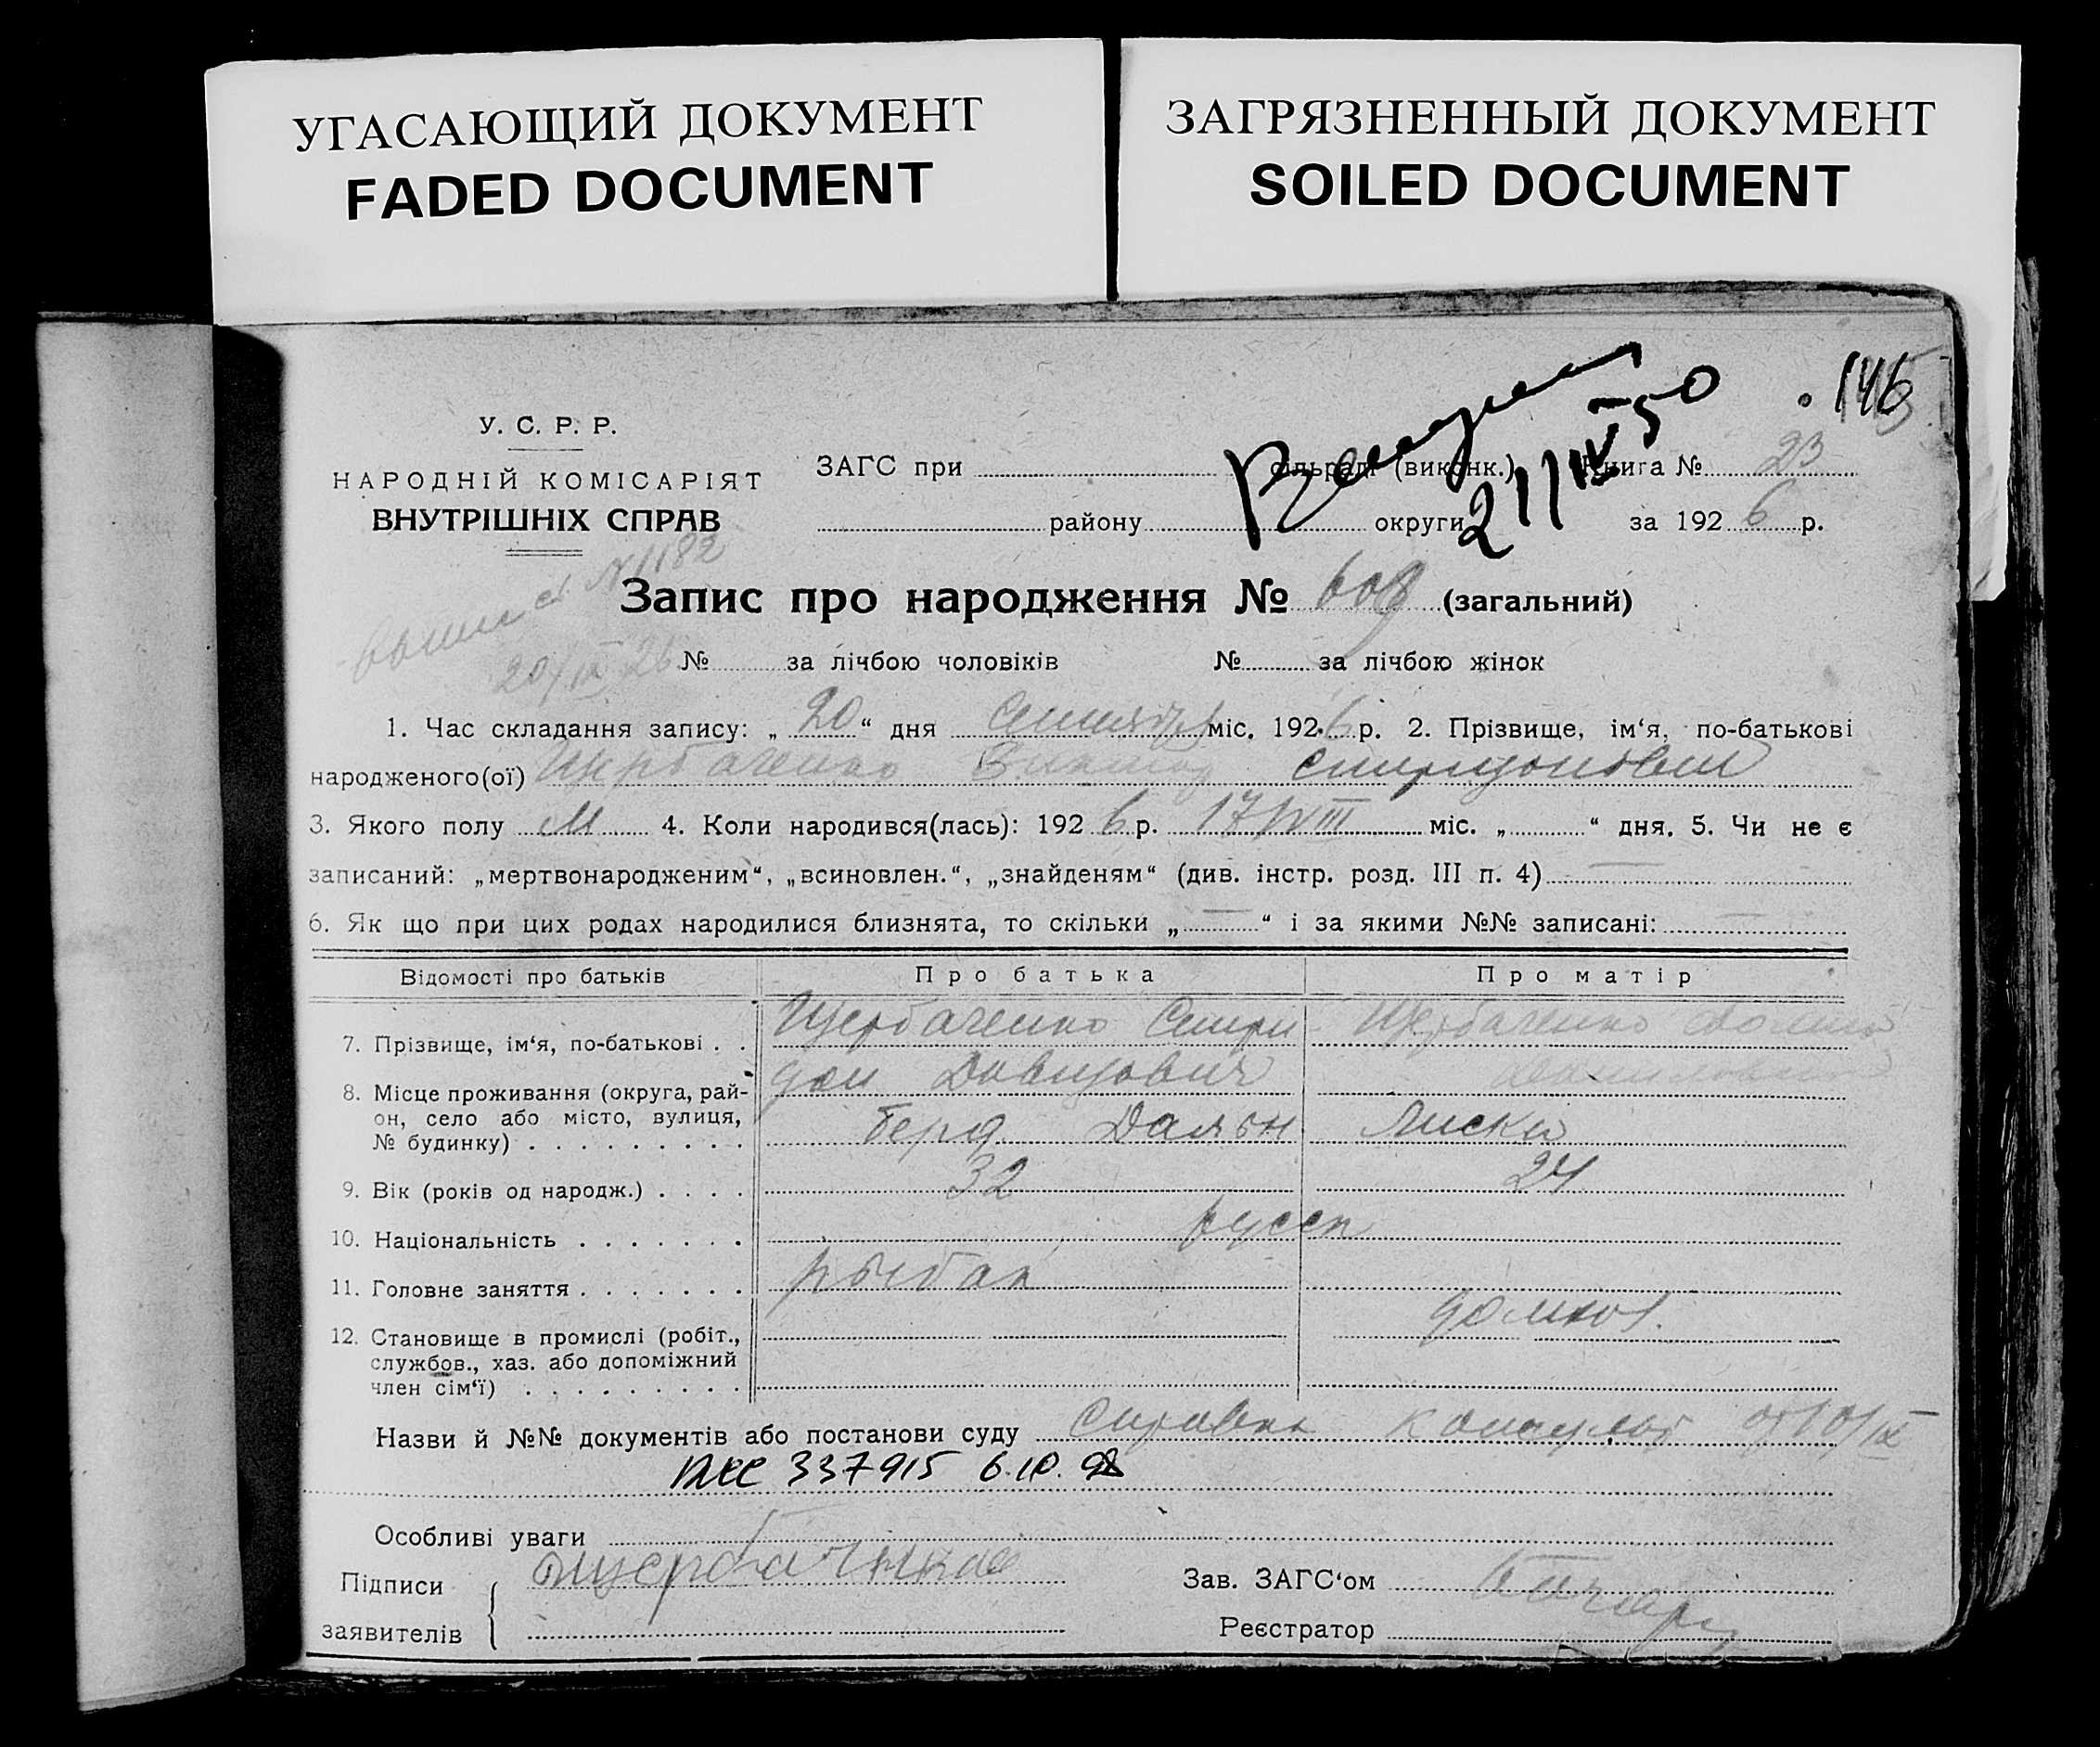 УГАСАЮЩИЙ ДОКУМЕНТ
FADED DOCUMENT
ЗАГРЯЗНЕННЫЙ ДОКУМЕНТ
SOILED DOCUMENT
146
У. С. Р. Р.
НАРОДНІЙ КОМІСАРІЯТ
ВНУТРІШНІХ СПРАВ
ЗАГС при сільраді (виконк.) Книга № 23
району округи за 192 6 р.
21/IV-50
№ 1182
20/IX 26
Запис про народження № 608 (загальний)
№ за лічбою чоловіків № за лічбою жінок
1. Час складання запису: „ 20 “ дня сентября міс. 192 6 р. 2. Прізвище, ім‘я, по-батькові
народженого(ої) Щербаченко Виктор Спиридонович
3. Якого полу М 4. Коли народився(лась): 192 6 р. 17/VIII міс. „ “ дня. 5. Чи не є
записаний: „мертвонародженим“, „всиновлен.“, „знайденям“ (див. інстр. розд. III п. 4) —
6. Як що при цих родах народилися близнята, то скільки „ — “ і за якими №№ записані: —
Відомості про батьків Про батька Про матір
7. Прізвище, ім‘я, по-батькові . . Щербаченко Спири Щербаченко
дон Давидович
8. Місце проживання (округа, рай-
он, село або місто, вулиця,
№ будинку) . . . . . . . . . Берд Дальн Лиски
9. Вік (років од народж.) . . . . 32 24
10. Національність . . . . . . . русск
11. Головне заняття . . . . . . . рыбак
домхоз.
12. Становище в промислі (робіт.,
службов., хаз. або допоміжний
член сім‘ї) . . . . . . . . .
Назви й №№ документів або постанови суду Справка от 10/IX
337915 6.10.98
Особливі уваги
Підписи
заявителів
Зав. ЗАГС‘ом
Реєстратор